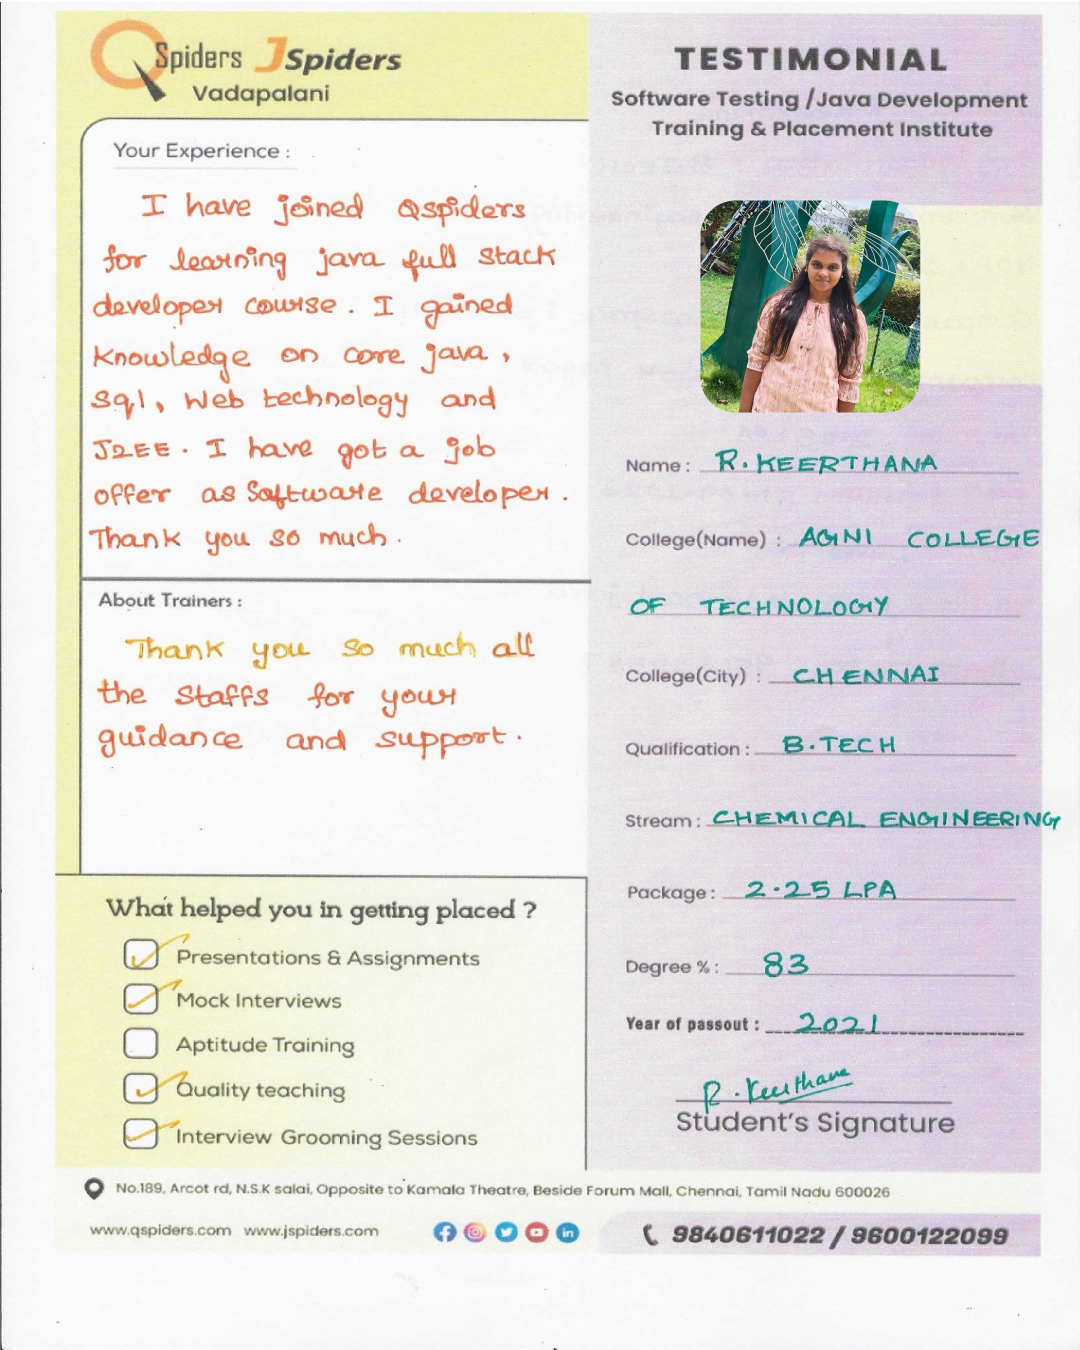 QSpiders JSpiders
Vadapalani
TESTIMONIAL
Software Testing /Java Development
Training & Placement Institute
Your Experience :
I have joined Qspiders
for learning java full stack
developer course. I gained
Knowledge on core java,
Sql, Web technology and
J2EE. I have got a job
offer as Software developer.
Thank you so much.
About Trainers :
Thank you so much all
the Staffs for your
guidance and support.
What helped you in getting placed ?
Presentations & Assignments
Mock Interviews
Aptitude Training
Quality teaching
Interview Grooming Sessions
Name : R. KEERTHANA
College(Name) : AGNI COLLEGE
OF TECHNOLOGY
College(City) : CHENNAI
Qualification : B.TECH
Stream : CHEMICAL ENGINEERING
Package : 2.25 LPA
Degree % : 83
Year of passout : 2021
R. Keerthana
Student's Signature
No.189, Arcot rd, N.S.K salai, Opposite to Kamala Theatre, Beside Forum Mall, Chennai, Tamil Nadu 600026
www.qspiders.com www.jspiders.com
9840611022 / 9600122099